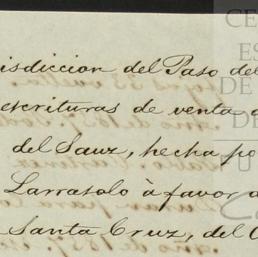 isdiccion del Paso del
escrituras de venta
del Sauz, hecha po
Larrasolo à favor d
Santa Cruz, del C
CE
ES
DE
DE
U